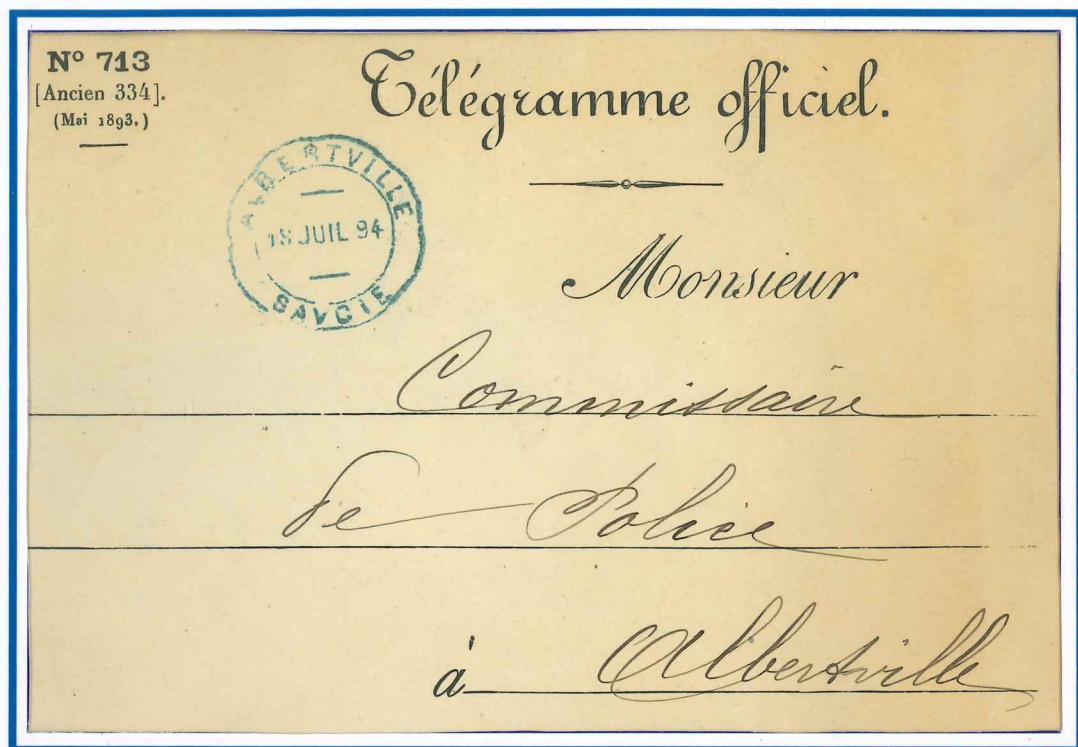 Nº 713
[Ancien 334].
(Mai 1893.)
Télégramme officiel.
ALBERTVILLE
18 JUIL 94
SAVOIE
Monsieur
Commissaire
de Police
à Albertville